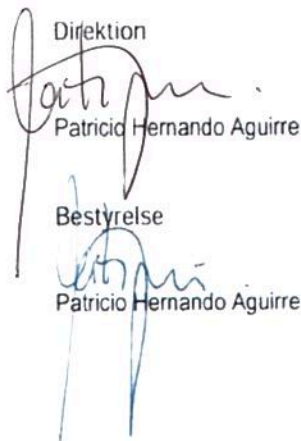 Direktion
Patricio Hernando Aguirre
Bestyrelse
Patricio Hernando Aguirre